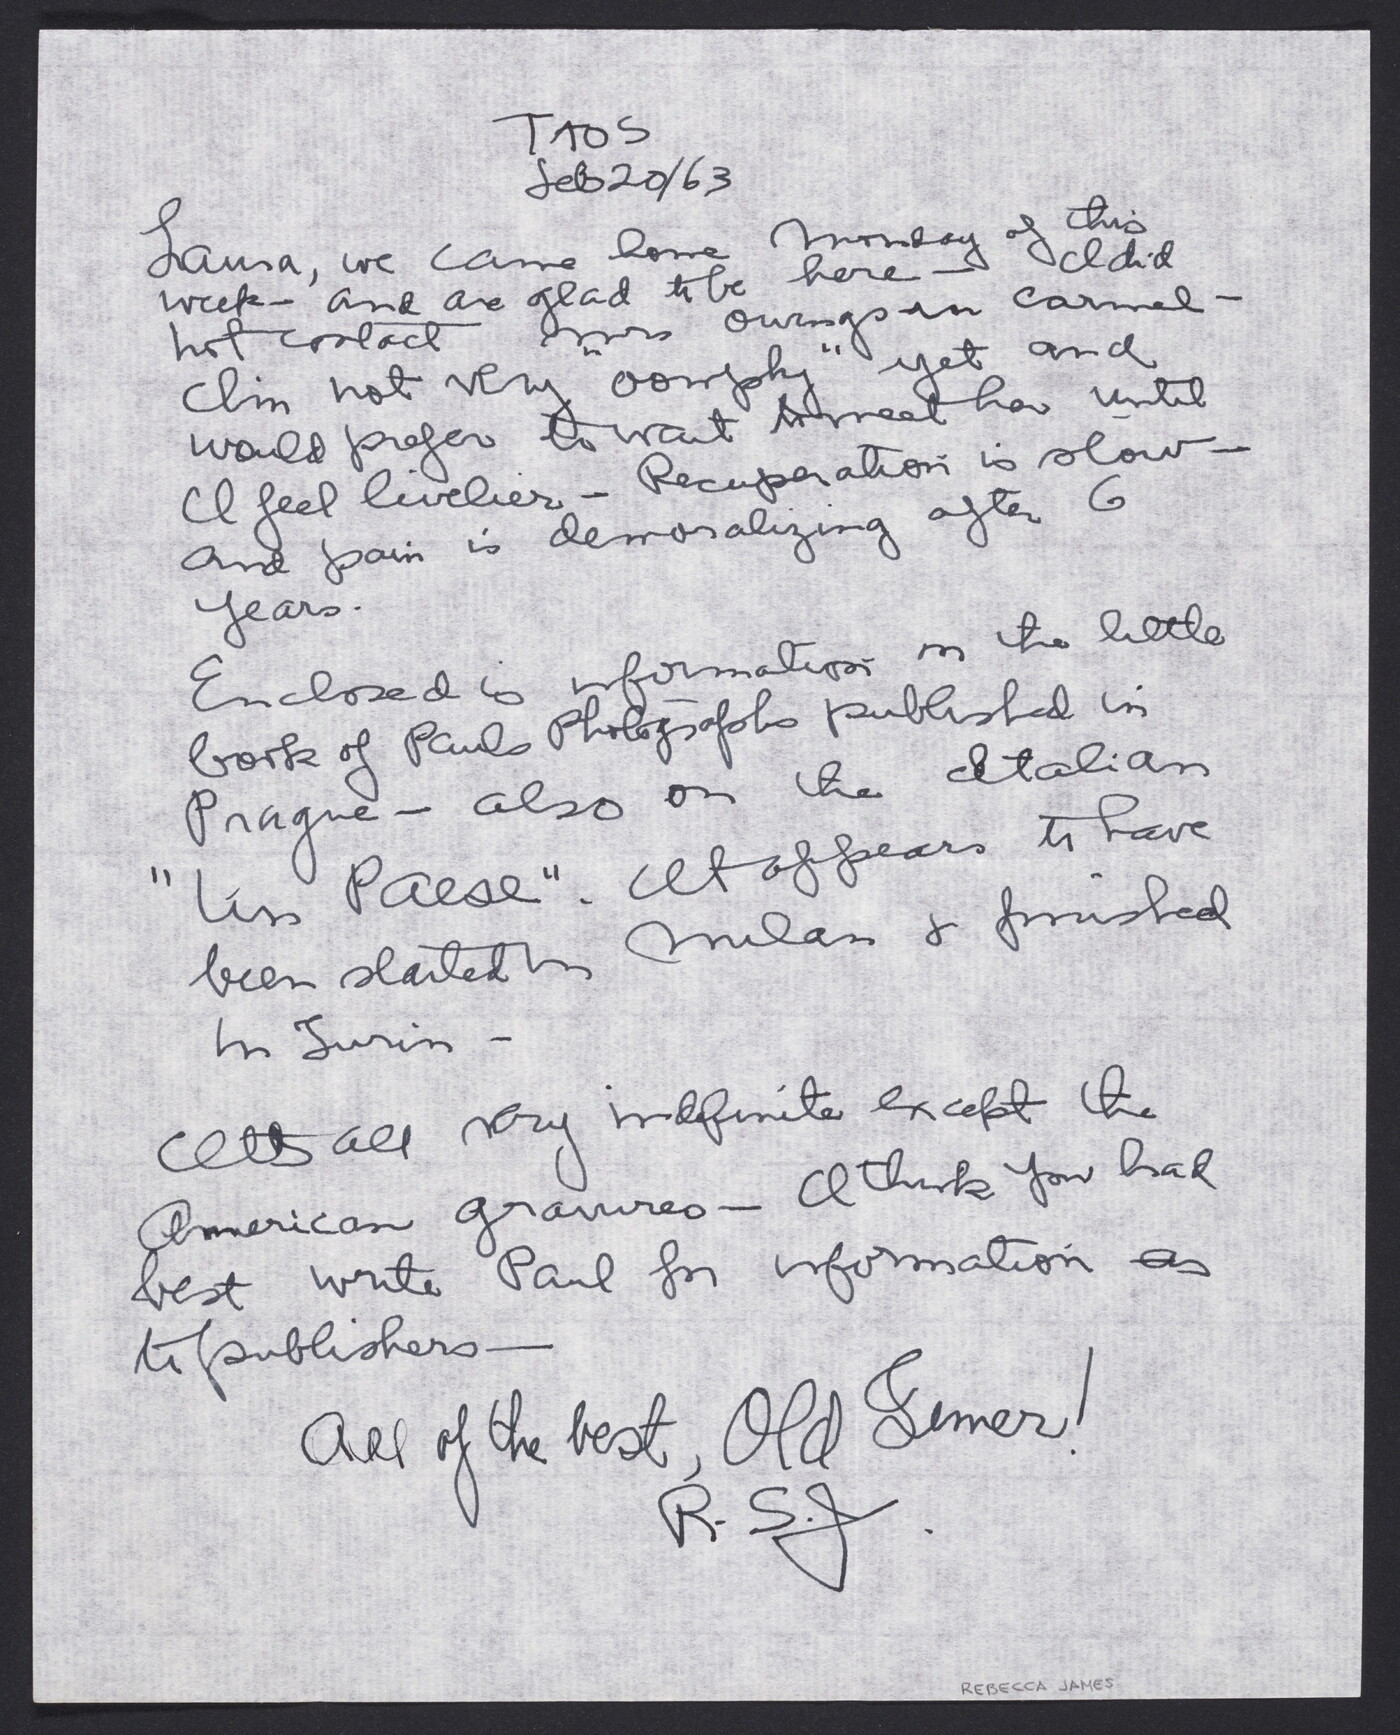 TAOS
Feb 20/63
Laura, we came home Monday of this
week - and are glad to be here - I did
not contact Mrs Owings in Carmel -
I'm not very "oomphy" yet and
would prefer to wait to meet her until
I feel livelier - Recuperation is slow -
and pain is demoralizing after 6
years.
Enclosed is information on the little
book of Pauls Photographs published in
Prague - also on the Italian
"Un Paese". It appears to have
been started in Milan & finished
in Turin -
It's all very indefinite except the
American gravures - I think you had
best write Paul for information as
to publishers -
All of the best, Old Timer!
R.S.J.
REBECCA JAMES